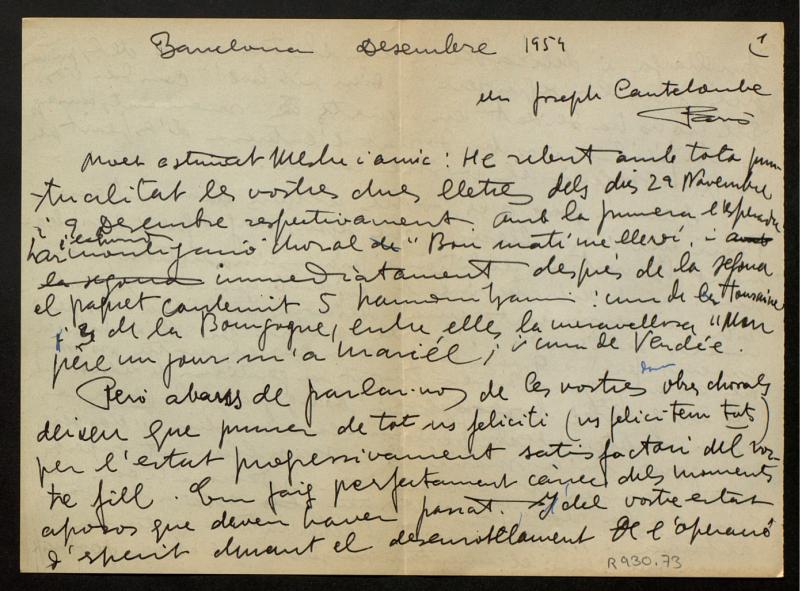 Barcelona Desembre 1954
1
en Joseph Canteloube
Paris
Molt estimat Mestre i amic: He rebut amb tota pun-
tualitat les vostres dues lletres dels dies 29 Novembre
i 9 Desembre respectivament. amb la primera l'esperada
i estimada
harmonització choral de "Bon matí me lleví, i amb
la segona immediatament després de la segona
el paquet contenint 5 harmonitzacions: una de la Touraine
i 3 de la Bourgogne, entre elles la meravellosa "Mon
père un jour m'a mariée, i una de Vendée.
Però abans de parlar-vos de les vostres obres chorals
deixeu que primer de tot us feliciti (us felicitem tots)
per l'estat progressivament satisfactori del vos-
tre fill. Em faig perfectament càrrec dels moments
aposos que deveu haver passat. I del vostre estat
d'esperit durant el desenrotllament de l'operació
R930.73